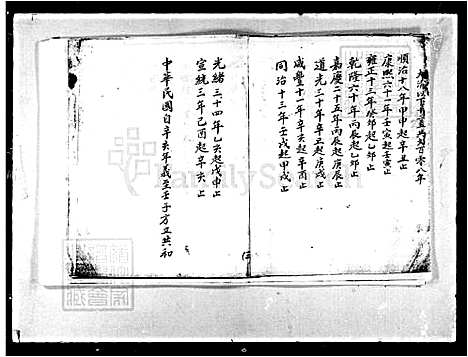 順治十八年甲申起辛丑止
康熙六十一年壬寅起壬寅止
雍正十三年癸卯起乙卯止
乾隆六十年丙辰起乙卯止
嘉慶二十五年丙辰起庚辰止
道光三十年辛丑起庚戌止
咸豐十一年辛亥起辛酉止
同治十三年壬戌起甲戌止
光緒三十四年乙亥起戊申止
宣統三年己酉起辛亥止
中華民國自辛亥年義至壬子方立共和
FamilySearch